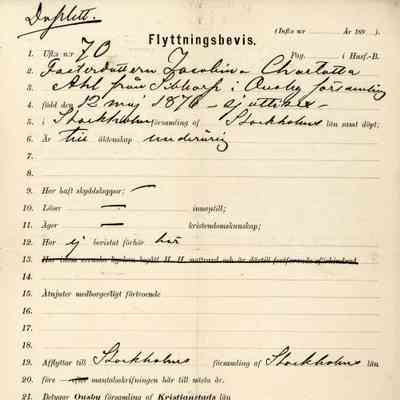 Duplett.
(Inft: n:r År 189 ).
Flyttningsbevis.
1. Uft: n:r 70 Pag. i Husf.-B.
2. Fosterdottern Jacobina Charlotta
3. Ahl från i Ousby församling
4. född den 12 maj 1876 - ej
5. i Stockholm församling af Stockholms län samt döpt;
6. Är till äktenskap underårig
7.
8.
9. Har haft skyddskoppor; —
10. Läser — innantill;
11. Äger — kristendomskunskap;
12. Har ej bevistat förhör här
13. H. H. nattvard och är därtill
14.
15. Åtnjuter medborgerligt förtroende
16.
17.
18.
19. Afflyttar till Stockholms församling af Stockholms län
20. före efter mantalsskrifningen här till nästa år.
21. Betygar Ousby församling af Kristianstads län